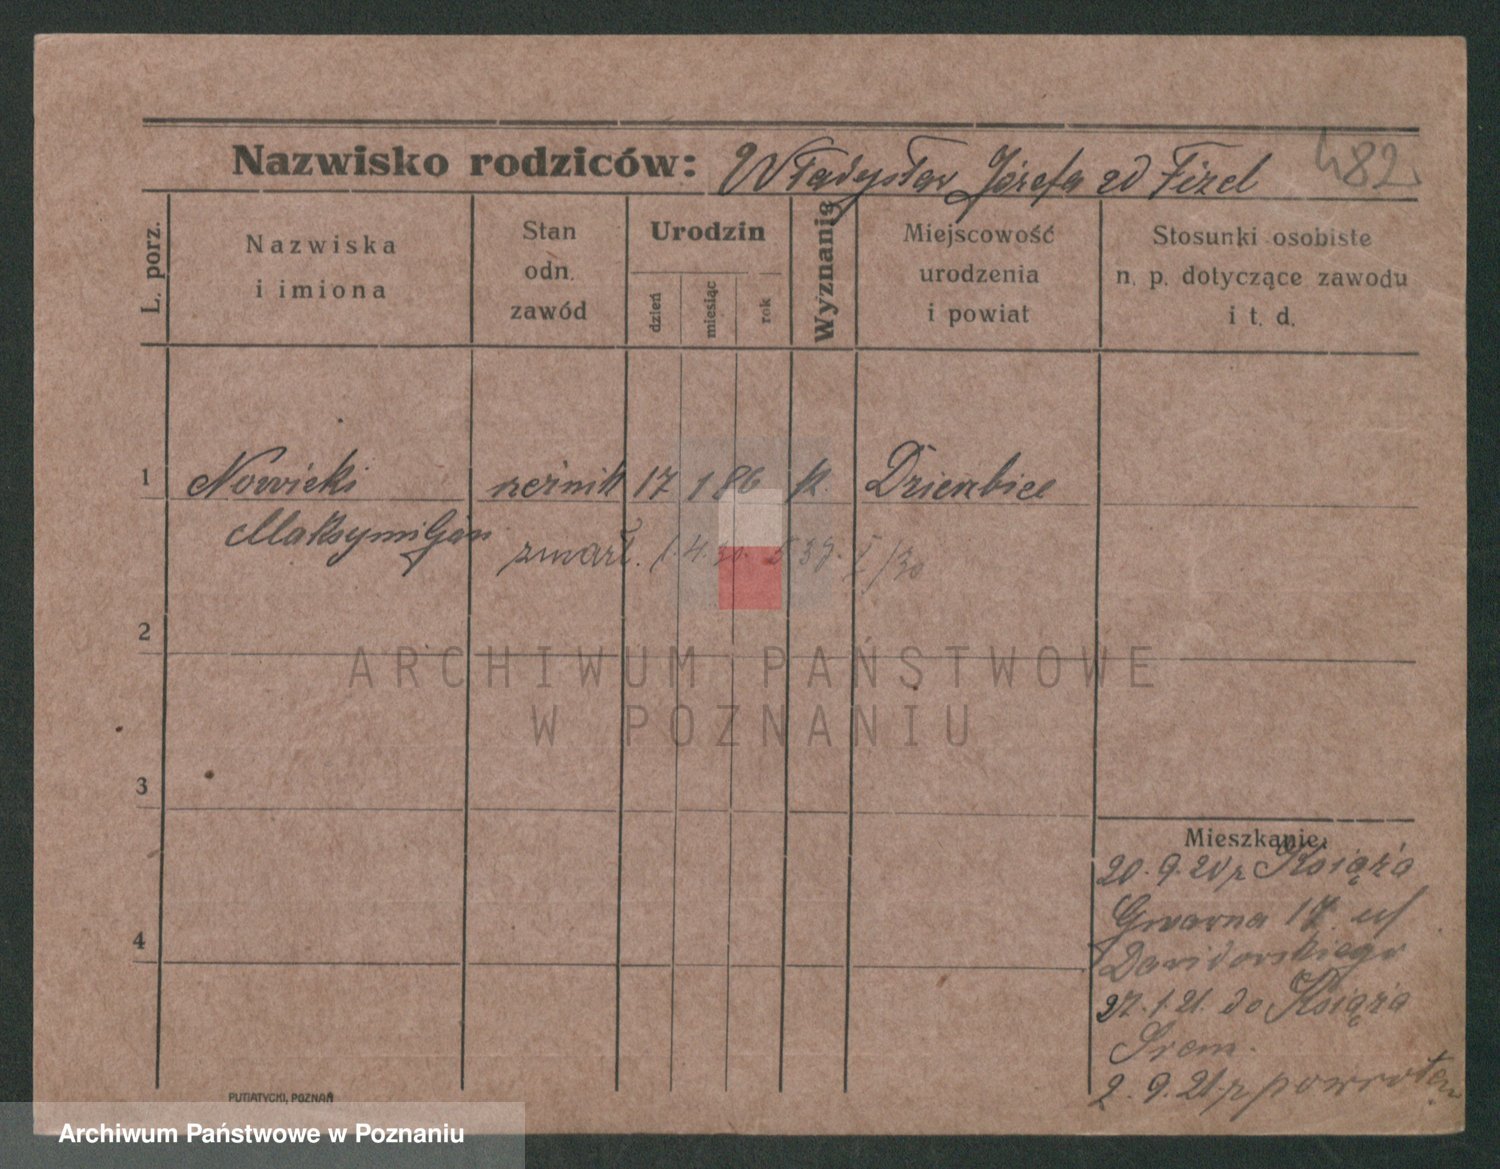 Nazwisko rodziców: Władysław Józefa zd Fizel
482
L. porz.
Nazwiska
i imiona
Stan
odn.
zawód
Urodzin
dzień
miesiąc
rok
Wyznanią
Miejscowość
urodzenia
i powiat
Stosunki osobiste
n. p. dotyczące zawodu
i t. d.
1
Nowicki rzeźnik 17 1 86 k. Dzierzbice
Maksymiljan zmarł. 1.4.30. 539. I/30
2
ARCHIWUM PAŃSTWOWE
W POZNANIU
3
4
Mieszkanie:
20.9.20 z Książa
Gwarna 17
27.1.21. do Książa
Śrem.
2.9.21. z powrotem
PUTIATYCKI, POZNAŃ
Archiwum Państwowe w Poznaniu